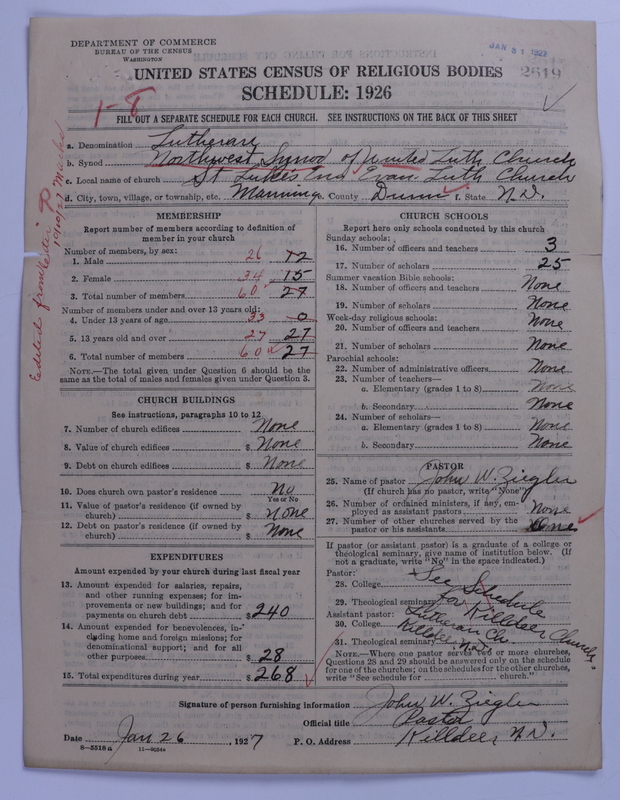 DEPARTMENT OF COMMERCE
BUREAU OF THE CENSUS
WASHINGTON
JAN 31 1927
2619
UNITED STATES CENSUS OF RELIGIOUS BODIES
SCHEDULE: 1926
1-8
FILL OUT A SEPARATE SCHEDULE FOR EACH CHURCH. SEE INSTRUCTIONS ON THE BACK OF THIS SHEET
a. Denomination Lutheran
b. Synod Northwest Synod of United Luth Church
c. Local name of church St Lukes Evan Luth Church
d. City, town, village, or township, etc. Manning e. County Dunn f. State N.D.
Edited from letter
MEMBERSHIP
Report number of members according to definition of
member in your church
Number of members, by sex:
1. Male 26 12
2. Female 34 15
3. Total number of members 60 27
Number of members under and over 13 years old:
4. Under 13 years of age 33 0
5. 13 years old and over 27 27
6. Total number of members 60 27
NOTE.—The total given under Question 6 should be the
same as the total of males and females given under Question 3.
CHURCH BUILDINGS
See instructions, paragraphs 10 to 12
7. Number of church edifices None
8. Value of church edifices $ None
9. Debt on church edifices $ None
10. Does church own pastor's residence No
Yes or No
11. Value of pastor's residence (if owned by
church) $ None
12. Debt on pastor's residence (if owned by
church) $ None
EXPENDITURES
Amount expended by your church during last fiscal year
13. Amount expended for salaries, repairs,
and other running expenses; for im-
provements or new buildings; and for
payments on church debt $ 240
14. Amount expended for benevolences, in-
cluding home and foreign missions; for
denominational support; and for all
other purposes $ 28
15. Total expenditures during year $ 268
CHURCH SCHOOLS
Report here only schools conducted by this church
Sunday schools:
16. Number of officers and teachers 3
17. Number of scholars 25
Summer vacation Bible schools:
18. Number of officers and teachers None
19. Number of scholars None
Week-day religious schools:
20. Number of officers and teachers None
21. Number of scholars None
Parochial schools:
22. Number of administrative officers None
23. Number of teachers—
a. Elementary (grades 1 to 8) None
b. Secondary None
24. Number of scholars—
a. Elementary (grades 1 to 8) None
b. Secondary None
PASTOR
25. Name of pastor John W. Ziegler
(If church has no pastor, write "None")
26. Number of ordained ministers, if any, em-
ployed as assistant pastors None
27. Number of other churches served by the
pastor or his assistants
If pastor (or assistant pastor) is a graduate of a college or
theological seminary, give name of institution below. (If
not a graduate, write "No" in the space indicated.)
Pastor:
28. College See Schedule
29. Theological seminary for Killdeer Church
Assistant pastor:
30. College Lutheran Ch.
31. Theological seminary Killdeer N.D.
NOTE.—Where one pastor serves two or more churches,
Questions 28 and 29 should be answered only on the schedule
for one of the churches; on the schedules for the other churches,
write "See schedule for church."
Signature of person furnishing information John W. Ziegler
Official title Pastor
Date Jan 26, 1927 P. O. Address Killdeer N.D.
8—5518a 11—9554